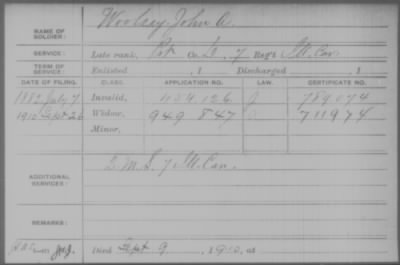 NAME OF SOLDIER: Woolsey, John A.
SERVICE: Late rank, Pvt Co. I, 7 Reg't Ill. Cav
TERM OF SERVICE: Enlisted , 1 Discharged , 1
DATE OF FILING. CLASS. APPLICATION NO. LAW. CERTIFICATE NO.
1882 July 7 Invalid, 454.126 789.074
1910 Sept 26 Widow, 949.847 711974
Minor,
ADDITIONAL SERVICES: I 7 Ill. Cav.
REMARKS:
Died Sept 9, 1910, at